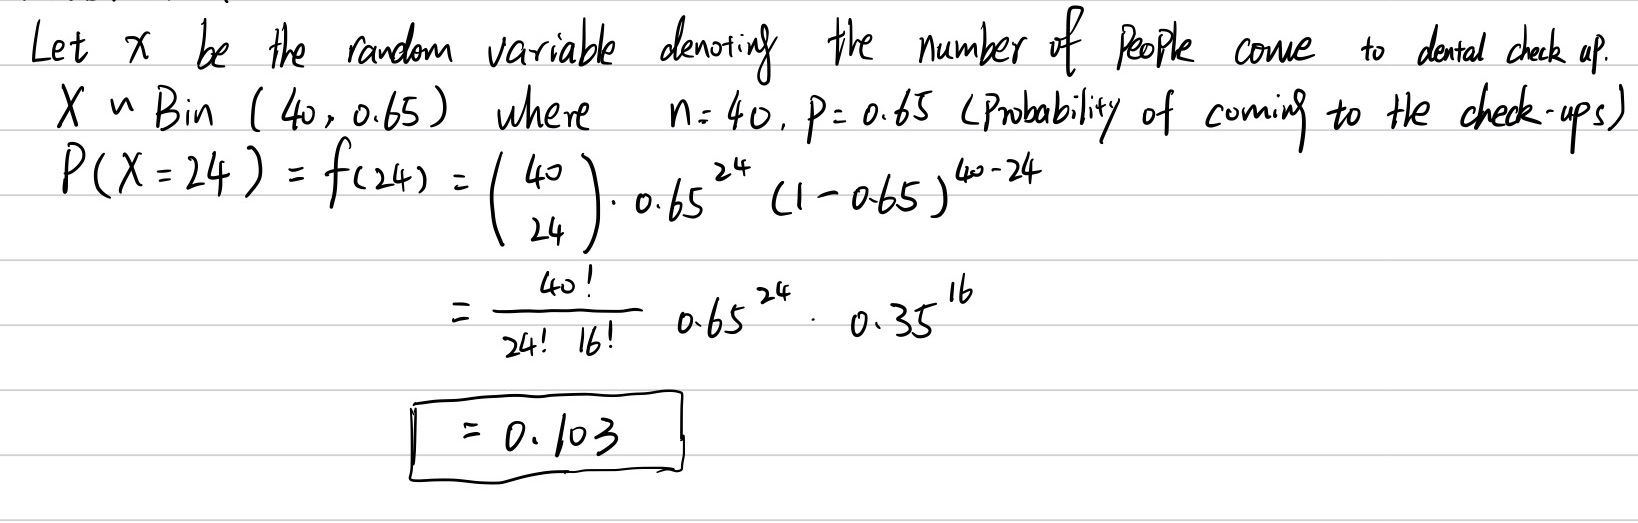 Let x be the random variable denoting the number of people come to dental check up.
X ~ Bin (40, 0.65) where n = 40, p = 0.65 (Probability of coming to the check-ups)
P(X = 24) = f(24) = (40 24) · 0.65^24 (1 - 0.65)^40-24
= 40! / 24! 16! 0.65^24 · 0.35^16
= 0.103